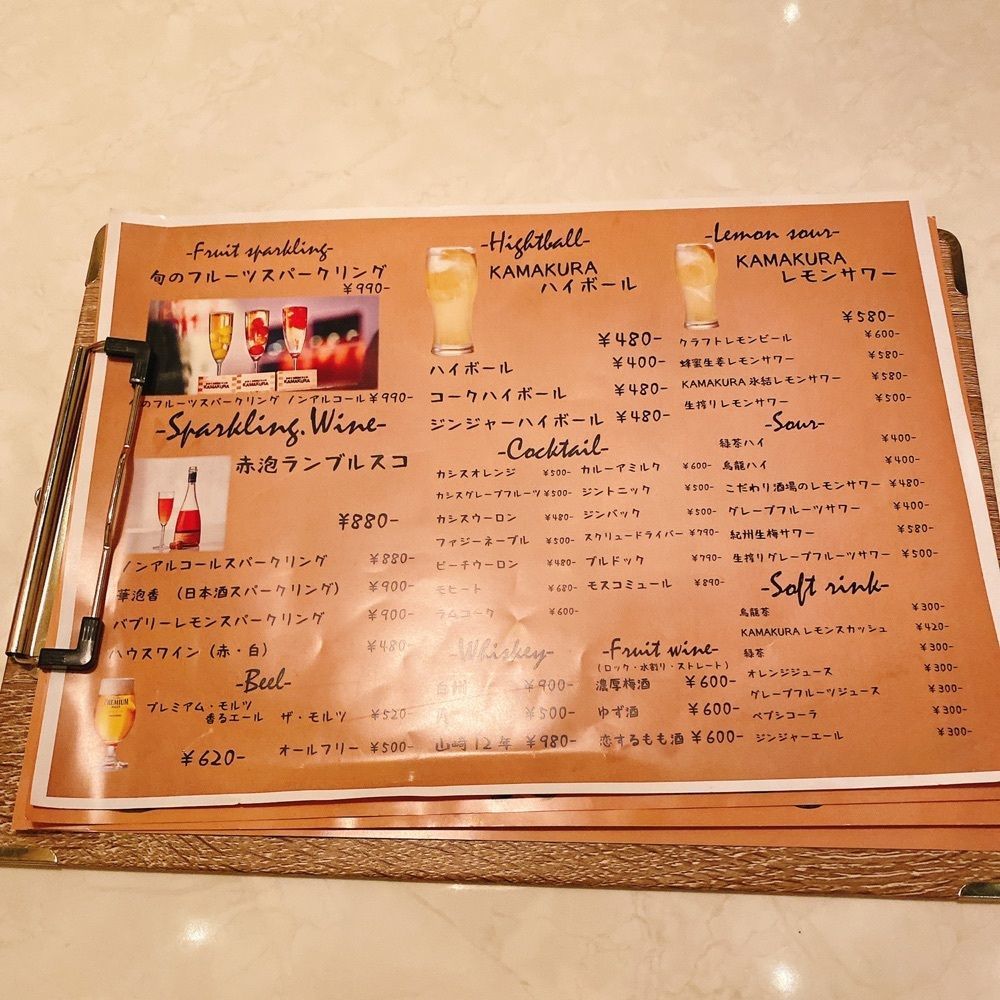 -Fruit sparkling-
旬のフルーツスパークリング
¥990-
KAMAKURA
KAMAKURA
KAMAKURA
のフルーツスパークリング ノンアルコール ¥990-
-Sparkling.Wine-
赤泡ランブルスコ
¥880-
ノンアルコールスパークリング ¥880-
華泡香 (日本酒スパークリング) ¥900-
バブリーレモンスパークリング ¥900-
ハウスワイン (赤・白) ¥480-
-Beel-
PREMIUM
プレミアム・モルツ
香るエール
¥620-
ザ・モルツ ¥520-
オールフリー ¥500-
-Hightball-
KAMAKURA
ハイボール
¥480-
ハイボール ¥400-
コークハイボール ¥480-
ジンジャーハイボール ¥480-
-Cocktail-
カシスオレンジ ¥500-
カシスグレープフルーツ ¥500-
カシスウーロン ¥480-
ファジーネーブル ¥500-
ピーチウーロン ¥480-
モヒート ¥680-
ラムコーク ¥600-
カルーアミルク ¥600-
ジントニック ¥500-
ジンバック ¥500-
スクリュードライバー ¥790-
ブルドック ¥790-
モスコミュール ¥890-
-Whiskey-
白州 ¥900-
¥500-
山崎12年 ¥980-
-Fruit wine-
(ロック・水割り・ストレート)
濃厚梅酒 ¥600-
ゆず酒 ¥600-
恋するもも酒 ¥600-
-Lemon sour-
KAMAKURA
レモンサワー
¥580-
クラフトレモンビール ¥600-
蜂蜜生姜レモンサワー ¥580-
KAMAKURA 氷結レモンサワー ¥580-
生搾りレモンサワー ¥500-
-Sour-
緑茶ハイ ¥400-
烏龍ハイ ¥400-
こだわり酒場のレモンサワー ¥480-
グレープフルーツサワー ¥400-
紀州生梅サワー ¥580-
生搾りグレープフルーツサワー ¥500-
-Soft rink-
烏龍茶 ¥300-
KAMAKURA レモンスカッシュ ¥420-
緑茶 ¥300-
オレンジジュース ¥300-
グレープフルーツジュース ¥300-
ペプシコーラ ¥300-
ジンジャーエール ¥300-